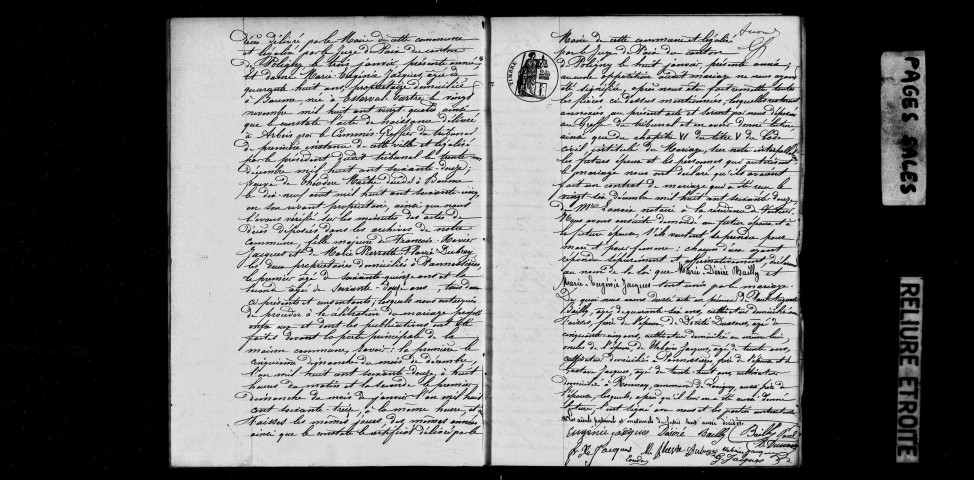 décès délivré par le Maire de cette commune
et légalisé par le Juge de Paix du canton
de Poligny le trois janvier, présente année,
Et dame Marie Eugénie Jacques âgée de
quarante huit ans, propriétaire domiciliée
à née à le vingt
novembre mil huit cent vingt quatre ainsi
que le constate l'acte de naissance délivré
à Arbois par le Commis-Greffier du tribunal
de première instance de cette ville et légalisé
par le président dudit tribunal le trente un
décembre mil huit cent soixante douze,
veuve de Théodore décédé à
le dix neuf août mil huit cent soixante cinq
en son vivant propriétaire, ainsi que nous
l'avons vérifié sur les minutes des actes de
décès déposées dans les archives de notre
commune, fille majeure de François-Xavier
Jacques et de Marie Pierrette Flavie Dubrez
les deux propriétaires domiciliés à
le premier âgé de soixante quinze ans et la
seconde âgée de soixante douze ans, tous deux
ci présents et consentants; lesquels nous ont requis
de procéder à la célébration du mariage projeté
entre eux et dont les publications ont été
faites devant la porte principale de la
maison commune, savoir: la première le
cinquième dimanche du mois de décembre
l'an mil huit cent soixante douze, à huit
heures du matin et la seconde le premier
dimanche du mois de janvier l'an mil huit
cent soixante treize, à la même heure, et à
les mêmes jours, des mêmes années
ainsi que le constate le certificat délivré par le
Maire de cette commune et légalisé
par le Juge de Paix du canton
de Poligny le huit janvier, présente année;
aucune opposition audit mariage ne nous ayant
été signifiée, après nous être fait remettre toutes
les pièces ci-dessus mentionnées, lesquelles resteront
annexées au présent acte et seront par nous déposées
au Greffe du tribunal et en avoir donné lecture
ainsi que du chapitre VI du titre V du Code
civil, intitulé du Mariage, sur notre interpellation
les futurs époux et les personnes qui autorisent
le mariage nous ont déclaré qu'ils avaient
fait un contrat de mariage qui a été reçu le
vingt six décembre mil huit cent soixante douze
de Mtre notaire à la résidence de
Nous avons ensuite demandé au futur époux et à
la future épouse, s'ils veulent se prendre pour
mari et pour femme: chacun d'eux ayant
répondu séparément et affirmativement, déclarons
au nom de la loi que Marie-Désiré Bailly et
Marie-Eugénie Jacques sont unis par le mariage.
De quoi nous avons dressé acte en présence de Paul Auguste
Bailly, âgé de quarante six ans, cultivateur domicilié à
frère de l'époux, de Désiré âgé de
cinquante cinq ans, cultivateur domicilié au même lieu
oncle de l'époux, de Urbain Jacques, âgé de trente ans
cultivateur domicilié à frère de l'épouse et de
Jacques, âgé de trente huit ans, cultivateur
domicilié à commune de Poligny, aussi frère de
l'épouse, lesquels, après qu'il leur en a été aussi donné
lecture, ont signé avec nous et les parties contractantes
Eugénie Jacques Désiré Bailly Bailly Paul
f. X. Jacques M. flavie Dubrez Urbain Jacques
G Jacques
TIMBRE
PAGES SALES
RELIURE ETROITE